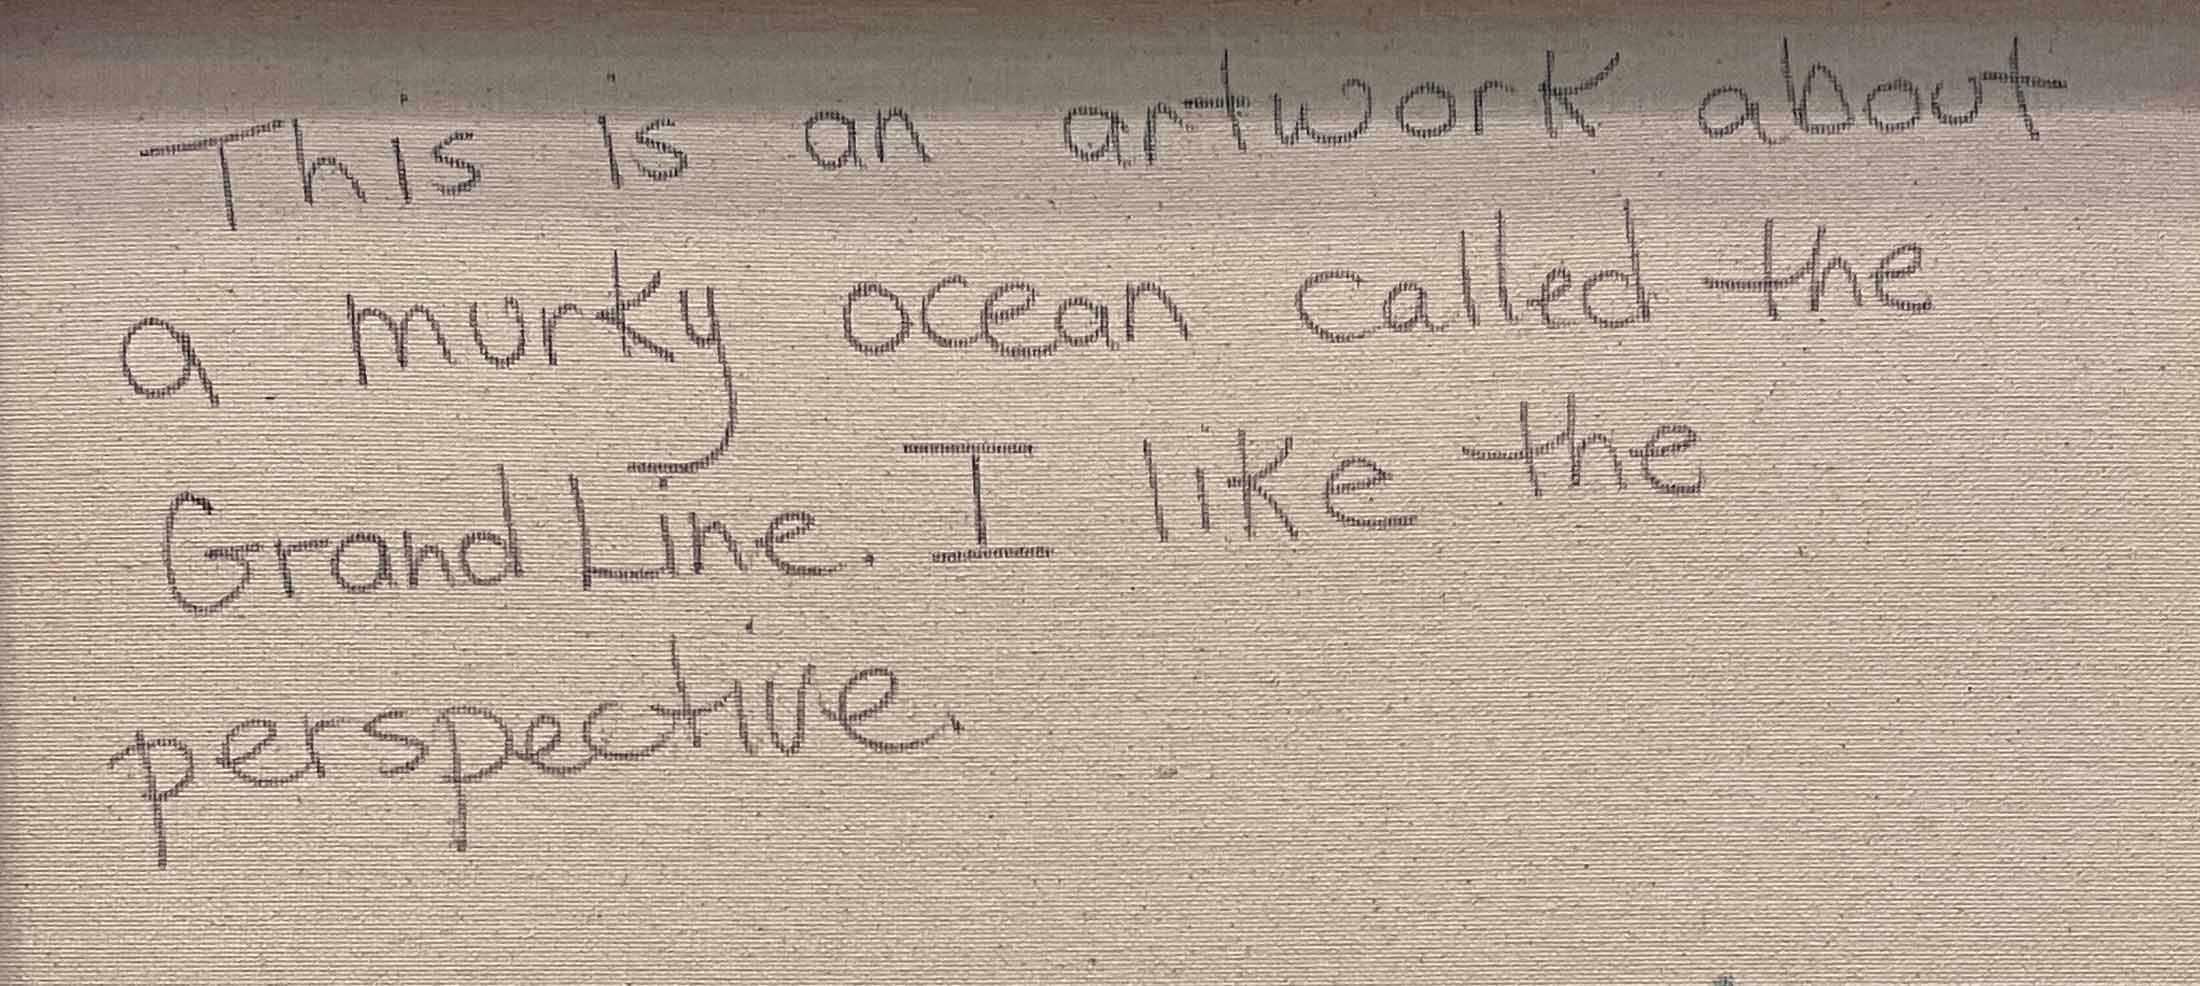 This is an artwork about
a murky ocean called the
Grand Line. I like the
perspective.